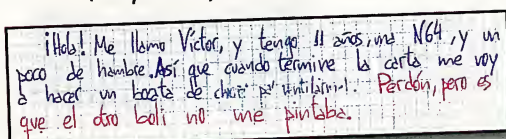 ¡Hola! Me llamo Víctor, y tengo 11 años, una N64, y un
poco de hambre. Así que cuando termine la carta me voy
a hacer un bocata de pa' Perdón, pero es
que el otro boli no me pintaba.